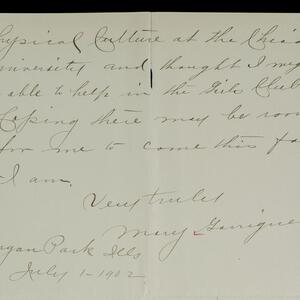 hysical Culture at the Chica
niversity and thought I mig
able to help in the Girls Club
Hoping there may be room
for me to come this fa
I am.
Very truly
Mary Garrigue
rgan Park Ills
July 1-1902